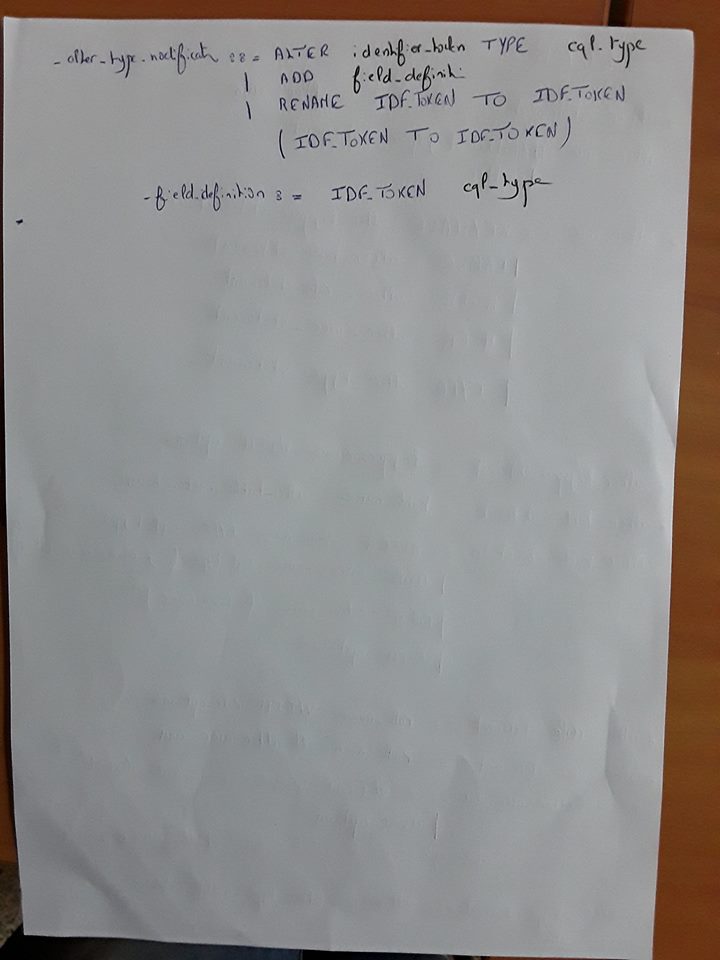 - alter_type_modificati ::= ALTER identifier_token TYPE cql_type
| ADD field_definiti
| RENAME IDF_TOKEN TO IDF_TOKEN
( IDF_TOKEN TO IDF_TOKEN )
- field_definition := IDF_TOKEN cql_type